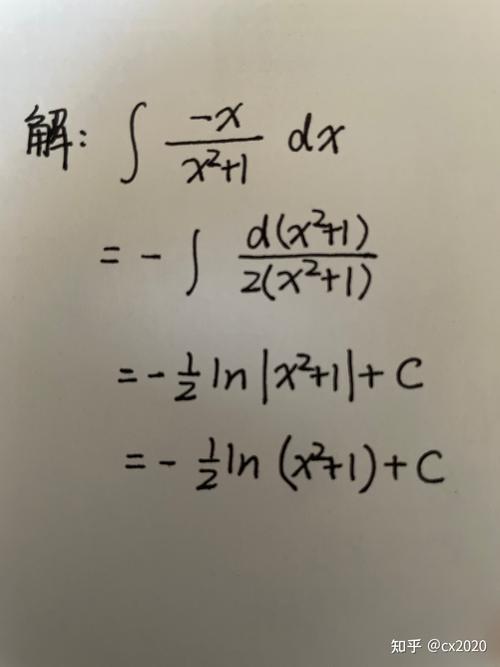 解: ∫ -x/(x²+1) dx
= - ∫ d(x²+1)/(2(x²+1))
= - 1/2 ln |x²+1| + C
= - 1/2 ln (x²+1) + C
知乎 @cx2020